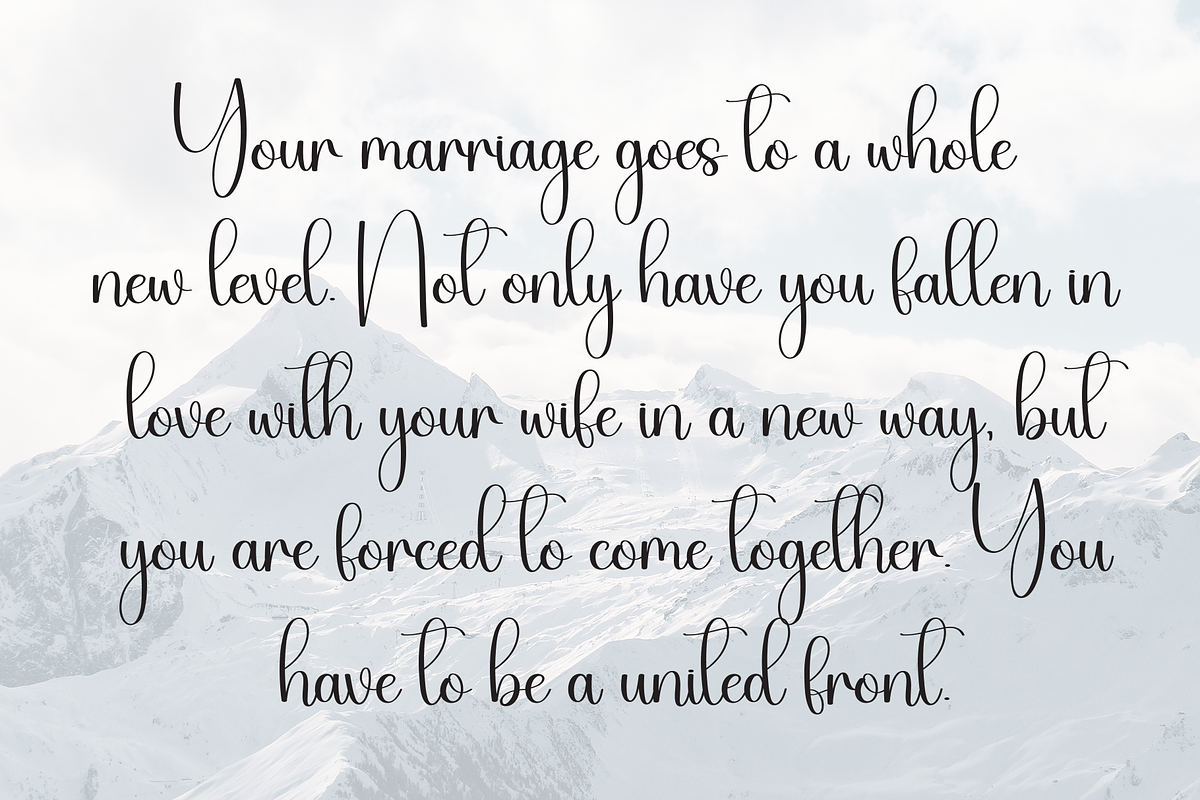 Your marriage goes to a whole
new level. Not only have you fallen in
love with your wife in a new way, but
you are forced to come together. You
have to be a united front.